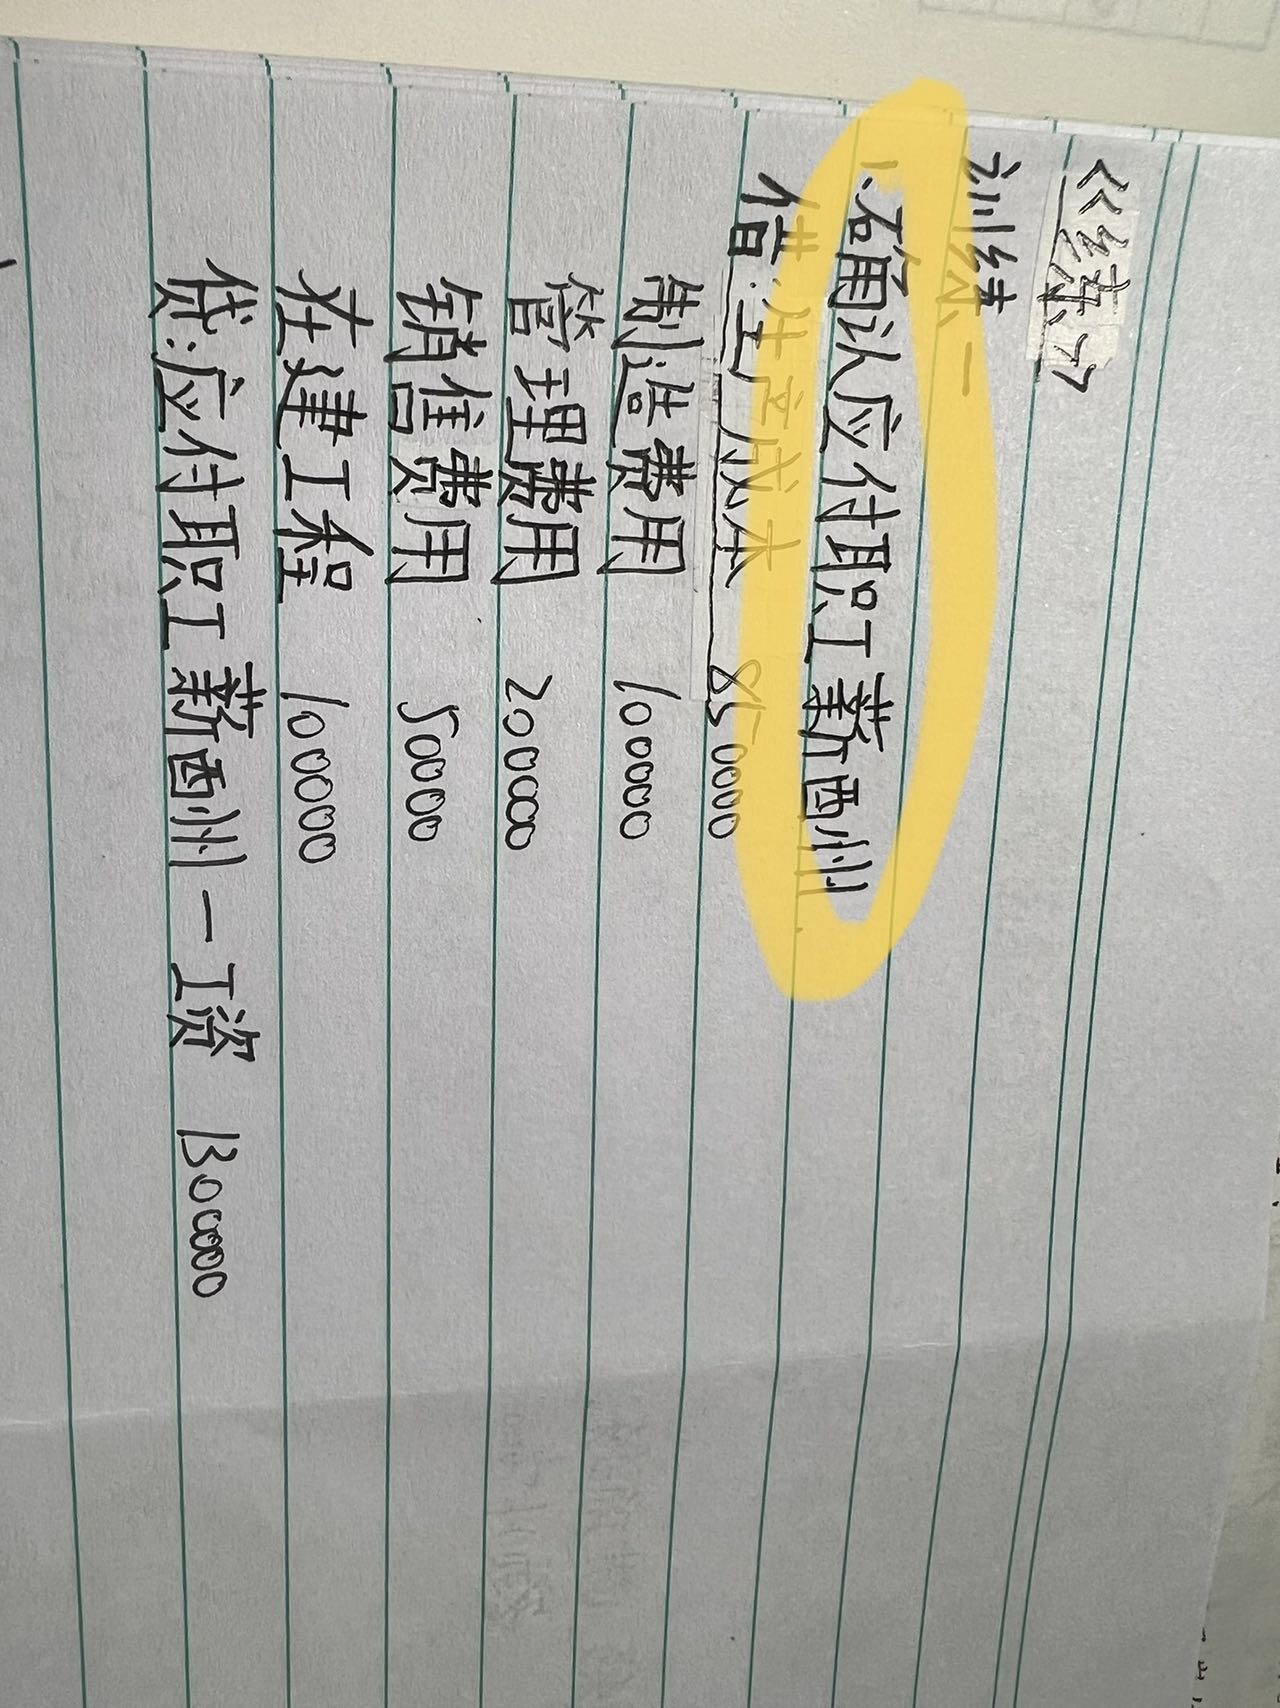 《练习》
训练一
1.确认应付职工薪酬
借:生产成本 850000
制造费用 100000
管理费用 200000
销售费用 50000
在建工程 100000
贷:应付职工薪酬—工资 1300000